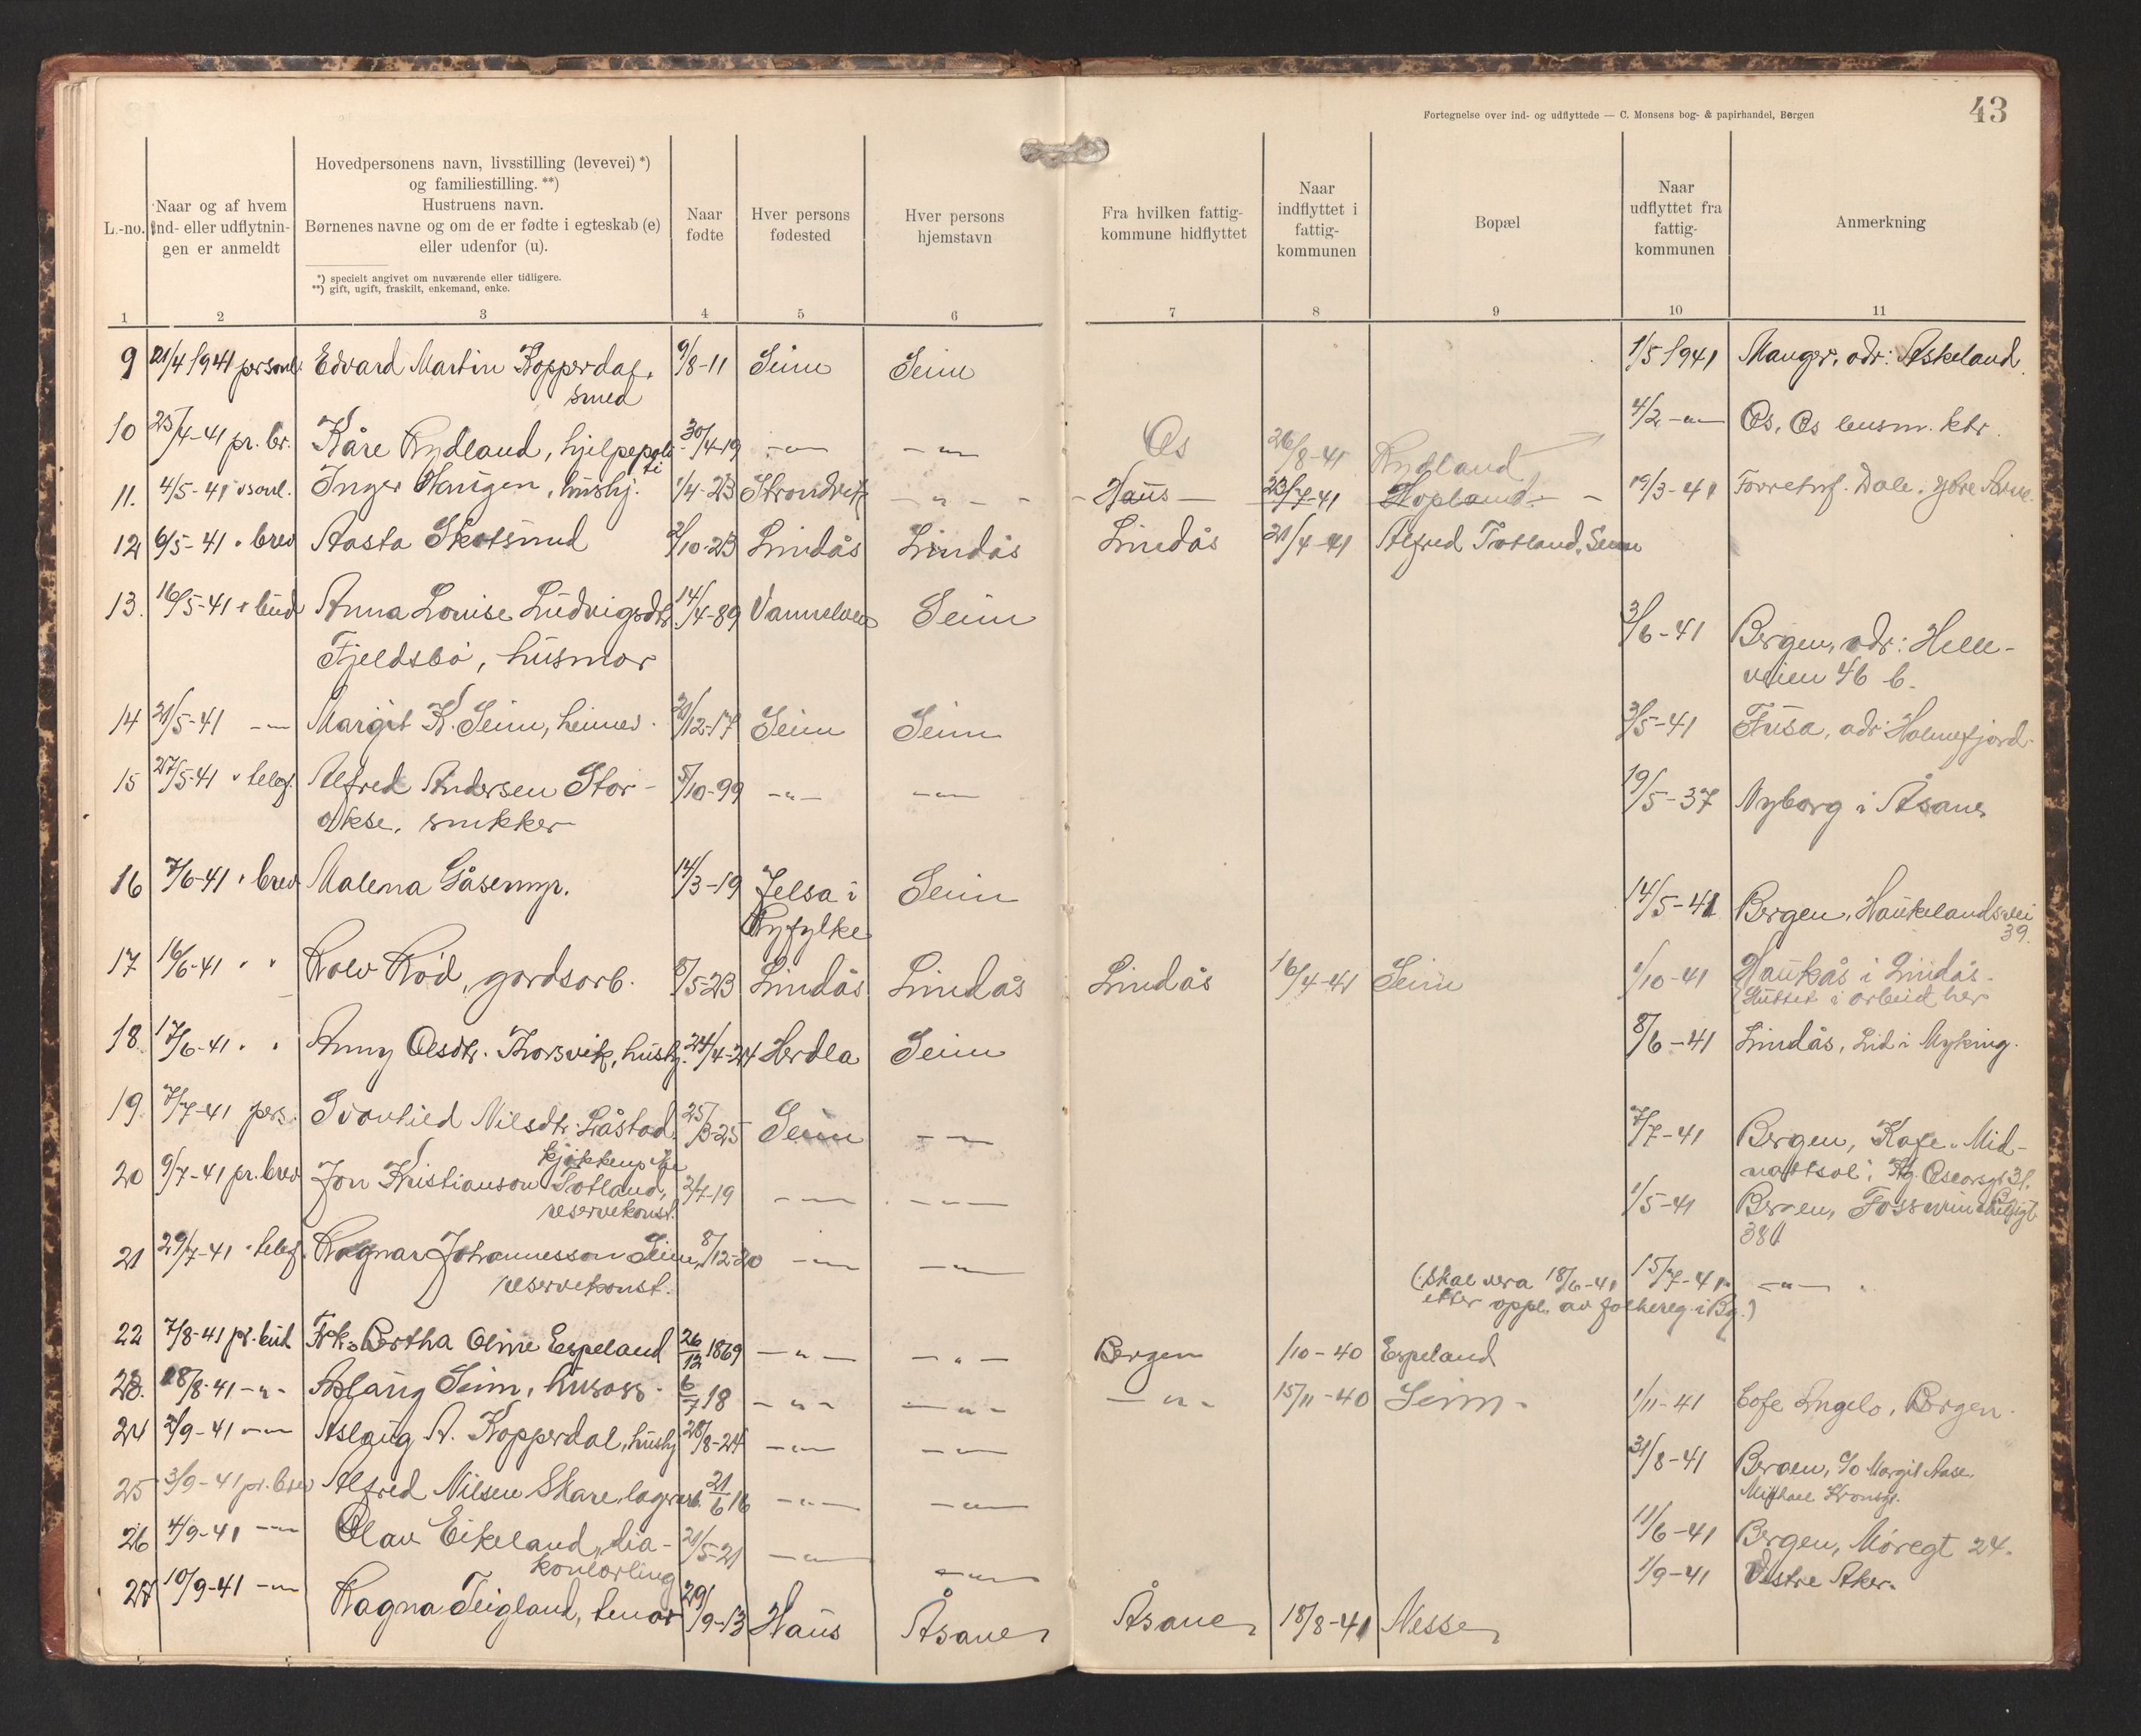 Fortegnelse over ind- og udflyttede — C. Monsens bog- & papirhandel, Bergen
43
L.-no.
Naar og af hvem ind- eller udflytningen er anmeldt
Hovedpersonens navn, livsstilling (levevei) *)
og familiestilling. **)
Hustruens navn.
Børnenes navne og om de er fødte i egteskab (e)
eller udenfor (u).
*) specielt angivet om nuværende eller tidligere.
**) gift, ugift, fraskilt, enkemand, enke.
Naar fødte
Hver persons fødested
Hver persons hjemstavn
Fra hvilken fattigkommune hidflyttet
Naar indflyttet i fattigkommunen
Bopæl
Naar udflyttet fra fattigkommunen
Anmerkning
1 2 3 4 5 6 7 8 9 10 11
9 21/4 1941 personl. Edvard Martin Kopperdal, 9/8-11 Seim Seim 1/5 1941 Manger, adr: Askeland.
smed
10 25/4-41 pr. br. Kåre Rydland, hjelpepoli- 30/4-19 -"- -"- Os 26/8-41 Rydland 4/2 -"- Os, Os lensm. ktr.
ti
11. 4/5-41 Inger Haugen, hushj. 1/4-23 Strandvik -"- Haus 23/7-41 Hopland 19/3-41 Dale
12 6/5-41 " brev Aasta Skotsund 2/10-23 Lindås Lindås Lindås 21/4-41 Alfred Totland, Seim
13. 16/5-41 " bud Anna Louise Ludvigsdtr. 14/4-89 Vannelven Seim 3/6-41 Bergen, adr: Helle-
Fjeldsbø, husmor veien 46 b.
14 21/5-41 -"- Margit K. Seim, heimev. 20/12-17 Seim Seim 3/5-41 Fusa, adr: Holmefjord.
15 27/5-41 " telef. Alfred Andersen Stor- 5/10-99 -"- -"- 19/5-37 Nyborg i Åsane
okse, snikker
16 7/6-41 " brev Malena Gåsemyr. 14/3-19 Jelsa i Seim 14/5-41 Bergen, Haukelandsvei
Ryfylke 39.
17 16/6-41 " " Rolv Rød, gardsarb. 8/5-23 Lindås Lindås Lindås 16/4-41 Seim 1/10-41 Haukås i Lindås.
(Sluttet i arbeid her
18 17/6-41 " " Anny Olsdtr. Thorsvik, hushj. 24/4-24 Herdla Seim 8/6-41 Lindås, Lid i Myking.
19 7/7-41 pers. Svanhild Nilsdtr. Låstad, 25/3-25 Seim -"- 7/7-41 Bergen, Kafe "Mid-
kjøkkenpike nattsol", Kg. Oscarsgt 31.
20 9/7-41 pr. brev Jon Kristianson Totland, 2/4-19 -"- -"- 1/5-41 Bergen, Fosswinckelsgt
reservekonst. 38
21 29/7-41 " telef. Ragnar Johannesson Seim, 8/12-20 -"- -"- 15/7-41 -"-
reservekonst. (skal vera 18/6-41
etter oppl. av folkereg. i Bg.)
22 7/8-41 pr. bud Frk. Bertha Oline Espeland 26/12 1869 -"- -"- Bergen /10-40 Espeland
23. 18/8-41 -"- Aslaug Seim, husass. 6/7 18 -"- -"- -"- 15/11-40 Seim. 1/11-41 Cafe Engelo, Bergen.
24 2/9-41 -"- Aslaug A. Kopperdal, hushj 28/8-24 -"- -"- 31/8-41 Bergen, c/o Margit Aase,
Michael Kronsgt.
25 3/9-41 pr. brev Alfred Nilsen Skare, lagerarb. 21/6 16 -"- -"- 11/6-41 Bergen, Møregt 24.
26 4/9-41 -"- Olav Eikeland, dia- 21/5-21 -"- -"- 1/9-41 Vestre Aker.
konlærling
27 10/9-41 -"- Ragna Teigland, 29/9-13 Haus Åsane Åsane 18/8-41 Nesse